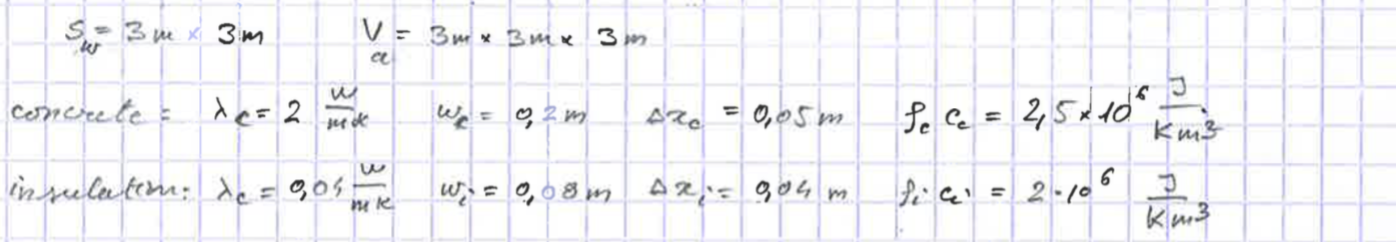 S_w = 3m × 3m V_a = 3m × 3m × 3m
concrete = λ_c = 2 W/mK w_c = 0,2 m Δx_c = 0,05 m ρ_c c_c = 2,5 × 10^6 J/Km^3
insulation: λ_c = 0,04 W/mK w_i = 0,08 m Δx_i = 0,04 m ρ_i c_i = 2·10^6 J/Km^3